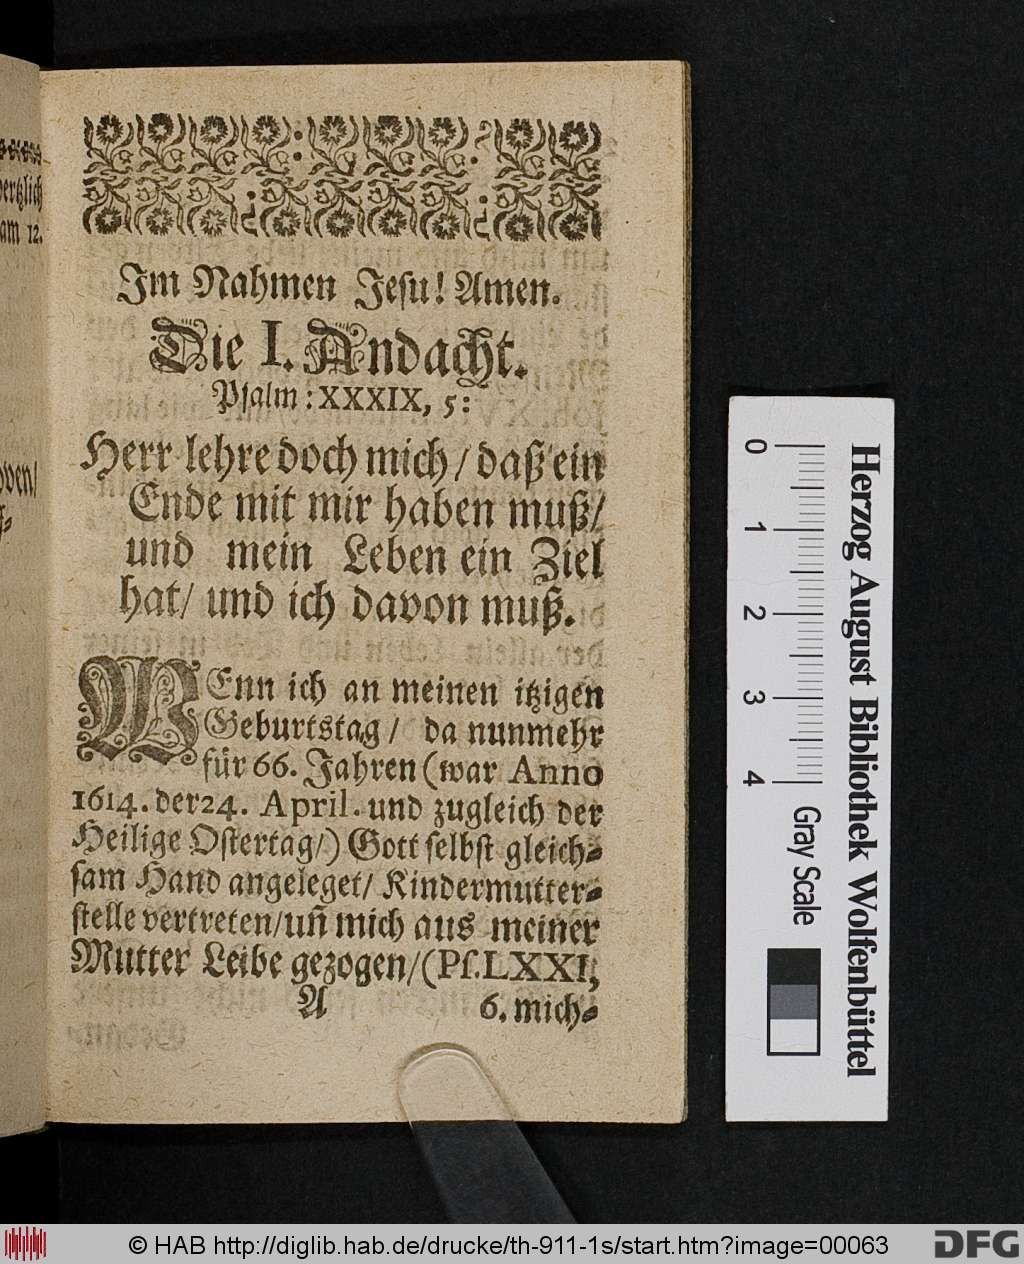 ertzlich
am 12.
oven/
Im Nahmen Jesu! Amen.
Die I. Andacht.
Psalm: XXXIX, 5:
Herr lehre doch mich / daß ein
Ende mit mir haben muß/
und mein Leben ein Ziel
hat/ und ich davon muß.
WEnn ich an meinen itzigen
Geburtstag / da nunmehr
für 66. Jahren (war Anno
1614. der 24. April. und zugleich der
Heilige Ostertag/) Gott selbst gleich-
sam Hand angeleget/ Kindermutter-
stelle vertreten/ uñ mich aus meiner
Mutter Leibe gezogen/ (Ps. LXXI,
A
6. mich-
0 1 2 3 4
Herzog August Bibliothek Wolfenbüttel
Gray Scale
© HAB http://diglib.hab.de/drucke/th-911-1s/start.htm?image=00063
DFG